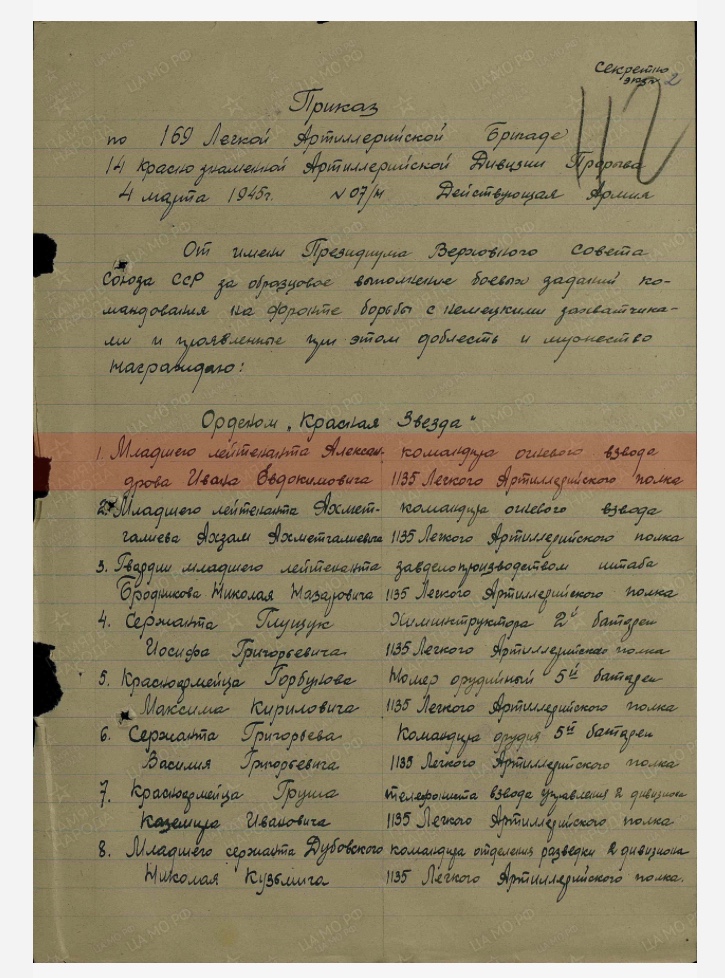 Секретно
экз № 2
112
Приказ
по 169 Легкой Артиллерийской Бригаде
14 Краснознаменной Артиллерийской Дивизии Прорыва
4 марта 1945г. №07/н Действующая Армия
От имени Президиума Верховного Совета
Союза ССР за образцовое выполнение боевых заданий ко-
мандования на фронте борьбы с немецкими захватчика-
ми и проявленные при этом доблесть и мужество
награждаю:
Орденом „Красная Звезда"
1. Младшего лейтенанта Алексан- командира огневого взвода
дрова Ивана Евдокимовича 1135 Легкого Артиллерийского полка
2. Младшего лейтенанта Ахмет- командира огневого взвода
галиева Ахзам Ахметгалиевича 1135 Легкого Артиллерийского полка
3. Гвардии младшего лейтенанта завделопроизводством штаба
Бродникова Николая Назаровича 1135 Легкого Артиллерийского полка
4. Сержанта Глущук Химинструктора 2й батареи
Иосифа Григорьевича 1135 Легкого Артиллерийского полка
5. Красноармейца Горбунова Номер орудийный 5й батареи
Максима Кириловича 1135 Легкого Артиллерийского полка
6. Сержанта Григорьева Командира орудия 5й батареи
Василия Григорьевича 1135 Легкого Артиллерийского полка
7. Красноармейца Груша телефониста взвода управления 2 дивизиона
Каземира Ивановича 1135 Легкого Артиллерийского полка
8. Младшего сержанта Дубовского командира отделения разведки 2 дивизиона
Николая Кузьмича 1135 Легкого Артиллерийского полка.